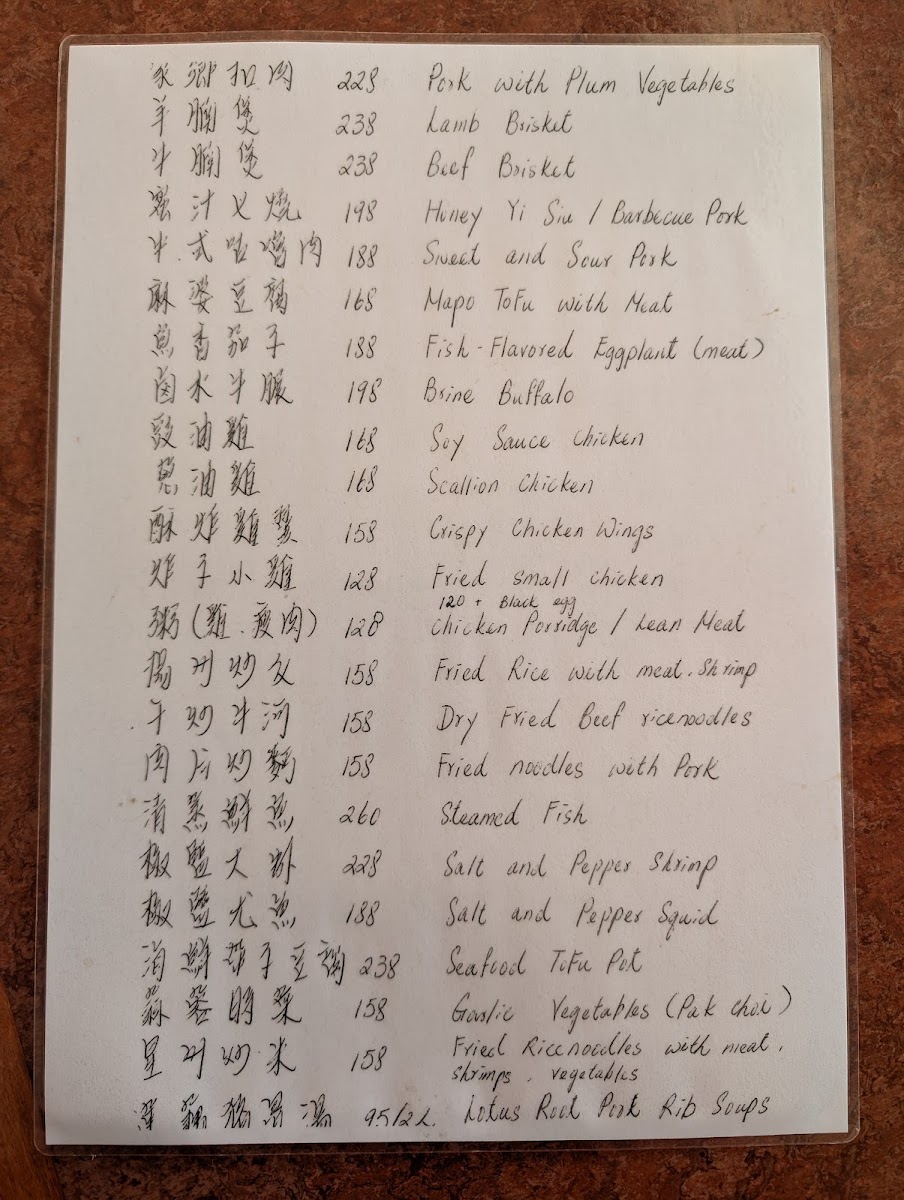 家鄉扣肉 228 Pork with Plum Vegetables
羊腩煲 238 Lamb Brisket
牛腩煲 238 Beef Brisket
蜜汁叉燒 198 Honey Yi Siu / Barbecue Pork
式咕嚕肉 188 Sweet and Sour Pork
麻婆豆腐 168 Mapo ToFu with Meat
魚香茄子 188 Fish-Flavored Eggplant (meat)
卤水牛𦟌 198 Brine Buffalo
豉油雞 168 Soy Sauce Chicken
葱油雞 168 Scallion Chicken
酥炸雞翼 158 Crispy Chicken Wings
炸子小雞 128 Fried small chicken
120 + Black egg
粥(雞.瘦肉) 128 Chicken Porridge / Lean Meat
揚州炒 158 Fried Rice with meat. Shrimp
干炒牛河 158 Dry Fried Beef ricenoodles
肉片炒麵 158 Fried noodles with Pork
清蒸鮮魚 260 Steamed Fish
椒鹽大虾 228 Salt and Pepper Shrimp
椒鹽尤魚 188 Salt and Pepper Squid
海鮮茄子豆腐 238 Seafood ToFu Pot
蒜蓉時菜 158 Garlic Vegetables (Pak Choi)
星州炒米 158 Fried Ricenoodles with meat.
shrimps. vegetables
湯 95/2L. Lotus Root Pork Rib Soups